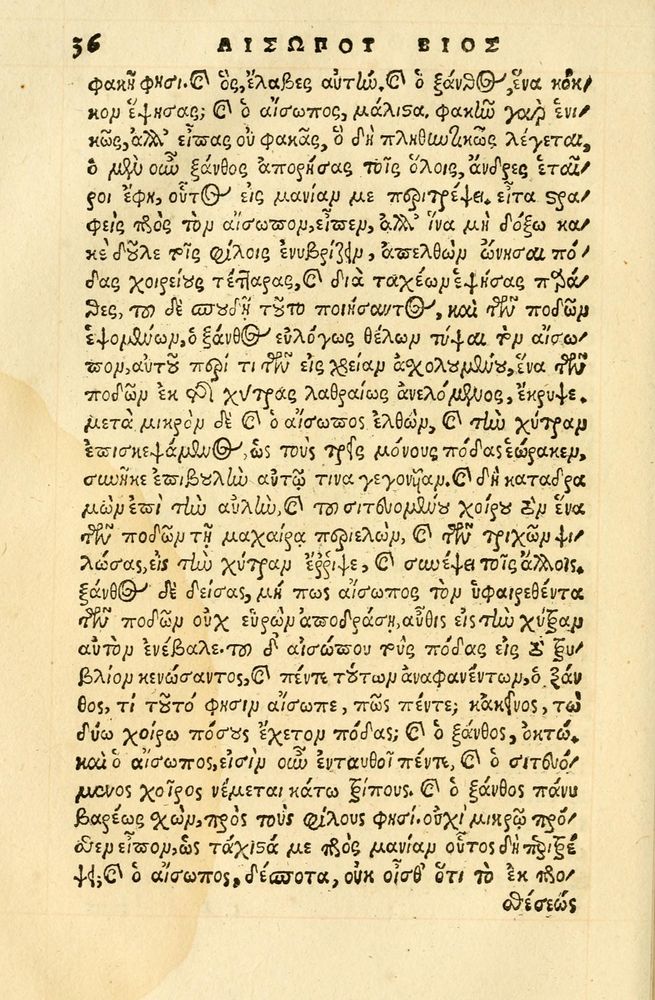 36 ΑΙΣΩΠΟΥ ΒΙΟΣ
φακῆ φησι. καὶ ὃς, ἔλαβες αὐτήν. καὶ ὁ ξάνθος, ἕνα κόκ/
κον ἕψησας; καὶ ὁ αἴσωπος, μάλιστα. φακῆν γὰρ ἑνι/
κῶς, ἀλλ' εἶπας οὐ φακᾶς, ὃ δὴ πληθυντικῶς λέγεται,
ὁ μὲν οὖν ξάνθος ἀπορήσας τοῖς ὅλοις, ἄνδρες ἑταῖ/
ροι ἔφη, οὗτος εἰς μανίαν με περιτρέψει. εἶτα στρα/
φεὶς πρὸς τὸν αἴσωπον, εἶπεν, ἀλλ' ἵνα μὴ δόξω κα/
κὲ δοῦλε τοῖς φίλοις ἐνυβρίζειν, ἀπελθὼν ὤνησαι πό/
δας χοιρείους τέτταρας, καὶ διὰ ταχέων ἑψήσας παρά/
θες, τοῦ δὲ σπουδῇ τοῦτο ποιήσαντος, καὶ τῶν ποδῶν
ἑψομένων, ὁ ξάνθος εὐλόγως θέλων τύψαι τὸν αἴσω/
πον, αὐτοῦ περί τι τῶν εἰς χρείαν ἀχολουμένου, ἕνα τῶν
ποδῶν ἐκ τῆς χύτρας λαθραίως ἀνελόμενος, ἔκρυψε.
μετὰ μικρὸν δὲ καὶ ὁ αἴσωπος ἐλθὼν, καὶ τὴν χύτραν
ἐπισκεψάμενος, ὡς τοὺς τρεῖς μόνους πόδας ἑώρακεν,
συνῆκε ἐπιβουλὴν αὐτῷ τινα γεγονῆαν. καὶ δὴ καταδρα
μὼν ἐπὶ τὴν αὐλὴν, καὶ τοῦ σιτευομένου χοίρου τὸν ἕνα
τῶν ποδῶν τῇ μαχαίρᾳ περιελὼν, καὶ τῶν τριχῶν ψι/
λώσας, εἰς τὴν χύτραν ἔρριψε, καὶ συνέψει τοῖς ἄλλοις.
ξάνθος δὲ δείσας, μή πως αἴσωπος τὸν ὑφαιρεθέντα
τῶν ποδῶν οὐχ εὑρὼν ἀποδράσῃ, αὖθις εἰς τὴν χύτραν
αὐτὸν ἐνέβαλε. τοῦ δ' αἰσώπου τοὺς πόδας εἰς τὸ τρυ/
βλίον κενώσαντος, καὶ πέντε τούτων ἀναφανέντων, ὁ ξάν
θος, τί τοῦτό φησιν αἴσωπε, πῶς πέντε; κἀκεῖνος, τὼ
δύω χοίρω πόσους ἔχετον πόδας; καὶ ὁ ξάνθος, ὀκτώ.
καὶ ὁ αἴσωπος, εἰσὶν οὖν ἐνταυθοῖ πέντε, καὶ ὁ σιτευό/
μενος χοῖρος νέμεται κάτω τρίπους. καὶ ὁ ξάνθος πάνυ
βαρέως σχὼν, πρὸς τοὺς φίλους φησί. οὐχὶ μικρῷ πρό/
θεν εἶπον, ὡς τάχιστά με πρὸς μανίαν οὗτος δὴ περιτρέ
ψει; καὶ ὁ αἴσωπος, δέσποτα, οὐκ οἶσθ' ὅτι τὸ ἐκ προ/
θέσεώς